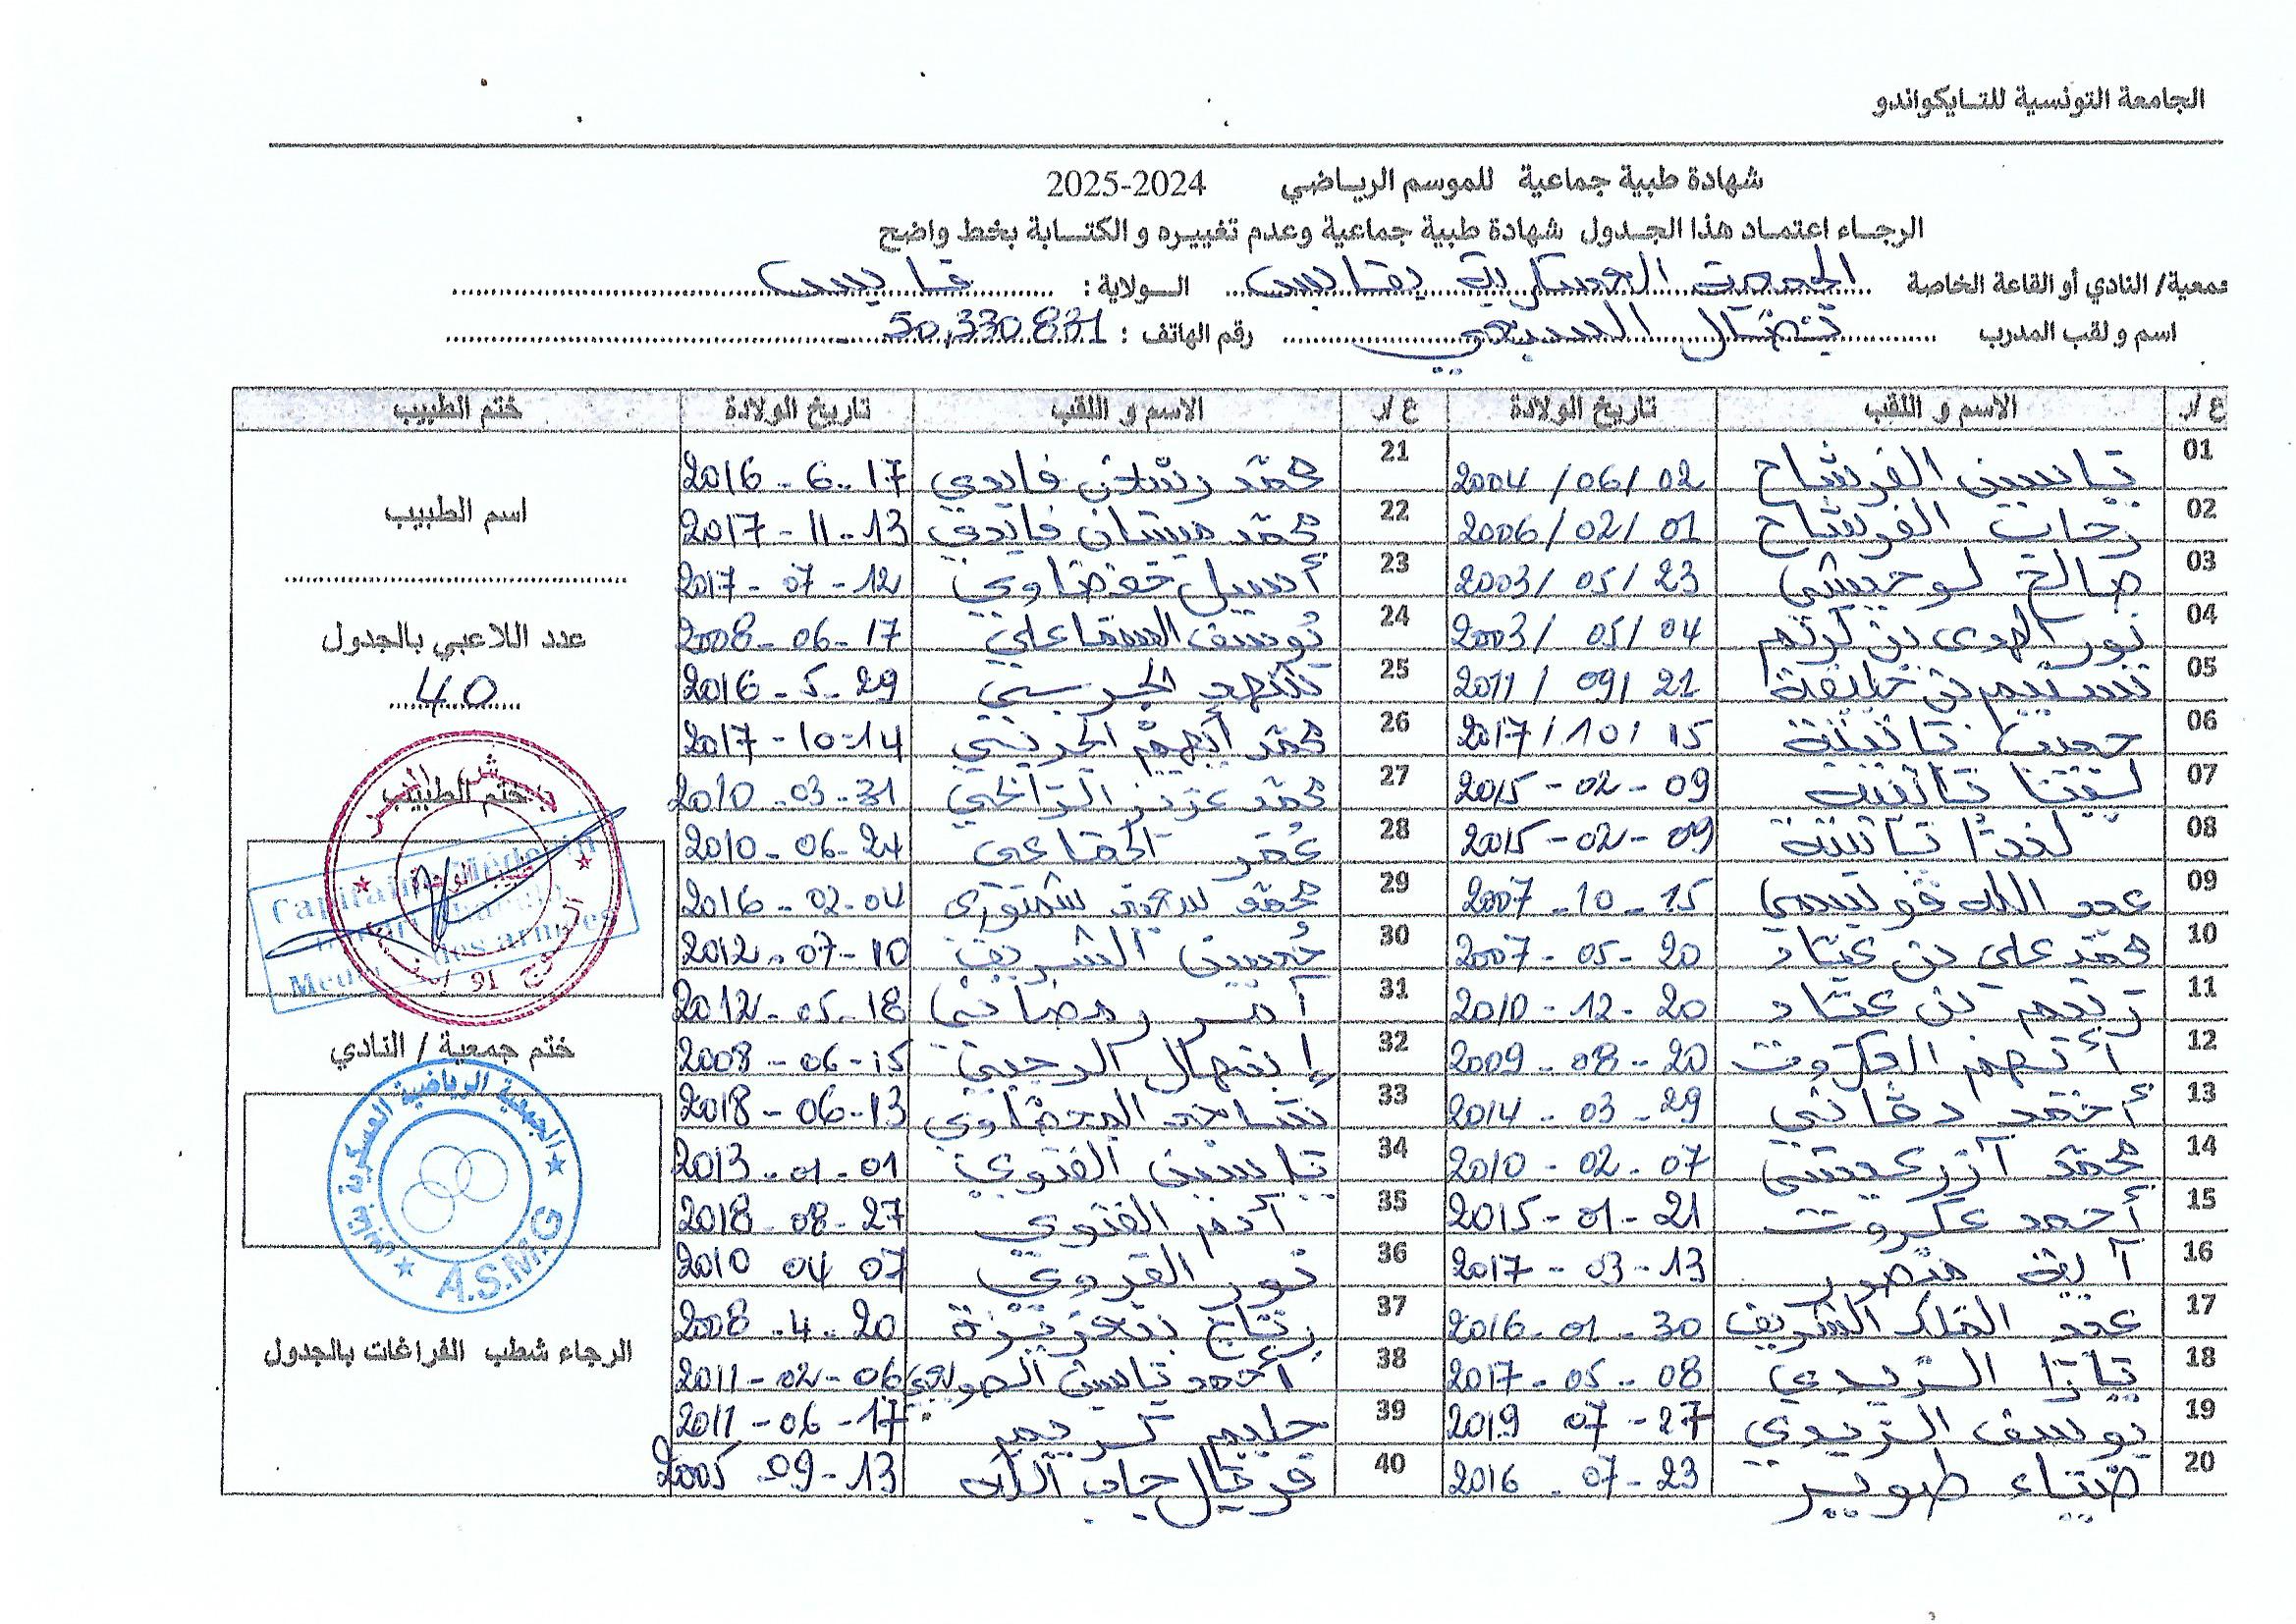 الجامعة التونسية للتايكواندو
شهادة طبية جماعية للموسم الرياضي 2024-2025
الرجاء اعتماد هذا الجدول شهادة طبية جماعية وعدم تغييره و الكتابة بخط واضح
معية/ النادي أو القاعة الخاصة الجمعية العسكرية بقابس الولاية : قابس
اسم و لقب المدرب نضال السبيعي رقم الهاتف : 50,330.831
ع/ر الاسم و اللقب تاريخ الولادة ع/ر الاسم و اللقب تاريخ الولادة ختم الطبيب
01 ياسين الفرشاح 2004/06/02 21 محمد رسلان فايدي 2016-6-17
02 رحاب الفرشاح 2006/02/01 22 محمد ميسان فايدي 2017-11-13
03 صالح لوحيشي 2003/05/23 23 أسيل خضراوي 2017-07-12
04 نور الهدى بن كريم 2003/05/04 24 يوسف السماعلي 2008-06-17
05 نسيم بن خليفة 2011/09/21 25 شهد الجريبي 2016-5-29
06 2017/10/15 26 محمد أيهم الحزيني 2017-10-14
07 2015-02-09 27 محمد عزيز الزالحي 2010-03-31
08 2015-02-09 28 عمر 2010-06-24
09 عبد الله قويسمي 2007-10-15 29 محمد سعيد شمتوري 2016-02-04
10 محمد علي بن عياد 2007-05-20 30 حسين الشريف 2012-07-10
11 ريم بن عياد 2010-12-20 31 رمضاني 2012-05-18
12 أيهم العكروت 2009-08-20 32 إبتهال الرجيبي 2008-06-15
13 أحمد دخاني 2014-03-29 33 2018-06-13
14 محمد آزر عيشي 2010-02-07 34 ياسين الفتوي 2013-01-01
15 أحمد عكروت 2015-01-21 35 آدم الفتوي 2018-08-27
16 آية منصور 2017-03-13 36 نور القروي 2010 04 07
17 عبد الملك الشريف 2016-01-30 37 رتاج بنعزيزة 2008-4-20
18 يارا الزيدي 2017-05-08 38 أحمد ياسين 2011-02-06
19 يوسف الزيدي 2019 07-27 39 حليم كريم 2011-06-17
20 ضياء طوير 2016-07-23 40 فريال جاب الله 2005-09-13
اسم الطبيب
عدد اللاعبي بالجدول
40
ختم الطبيب
ختم جمعية / النادي
الجمعية الرياضية العسكرية بقابس
A.S.M.G
الرجاء شطب الفراغات بالجدول